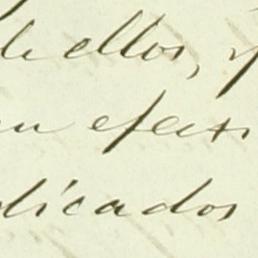 de ellos, y
en efecti
dicados